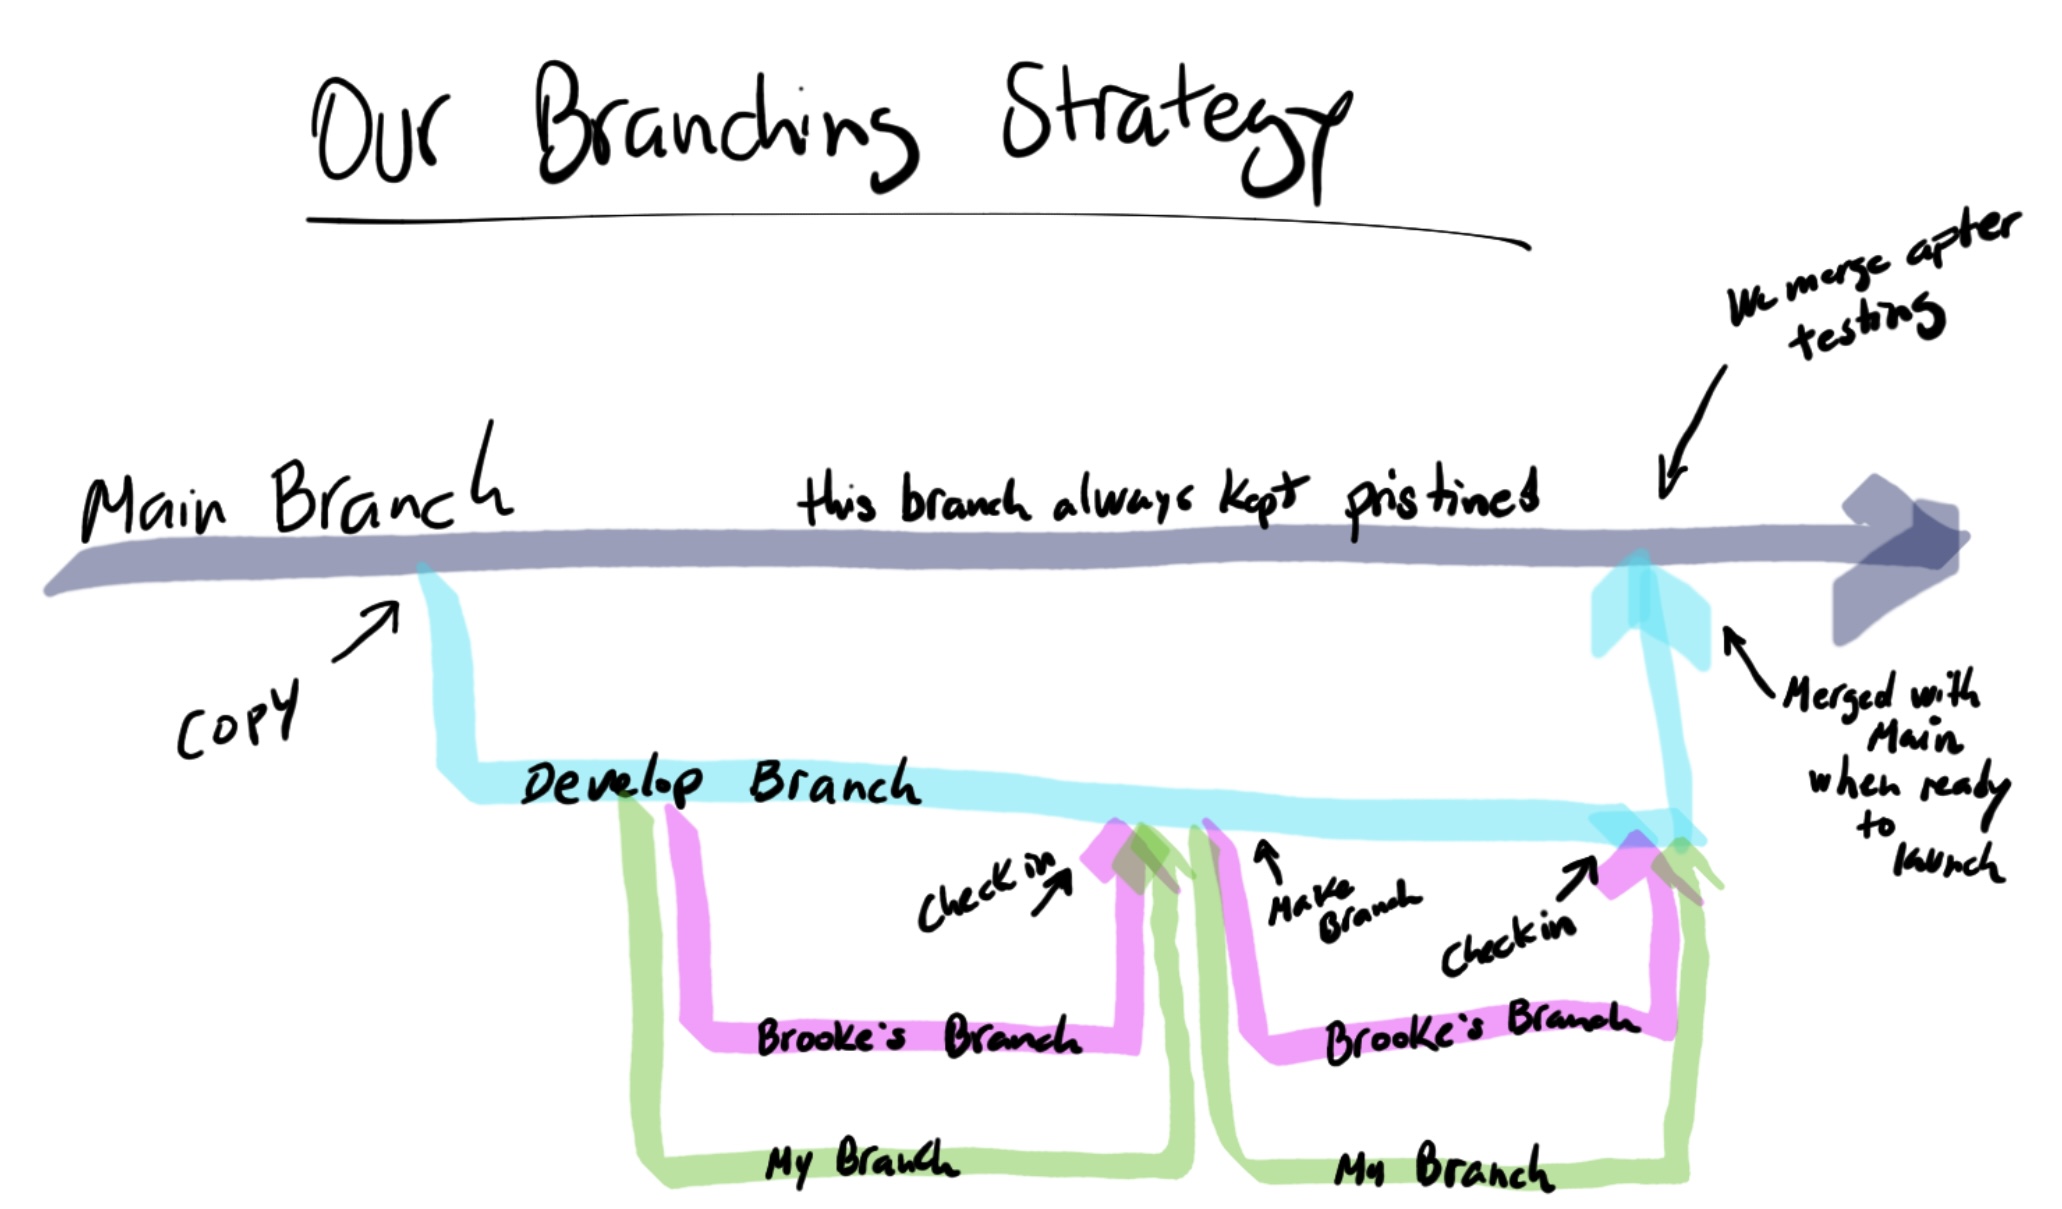 Our Branching Strategy
We merge apter
testing
Main Branch
this branch always kept pristined
COPY
Merged with
Main
when ready
to
launch
Develop Branch
Check in
Make
Branch
Check in
Brooke's Branch
Brooke's Branch
My Branch
My Branch